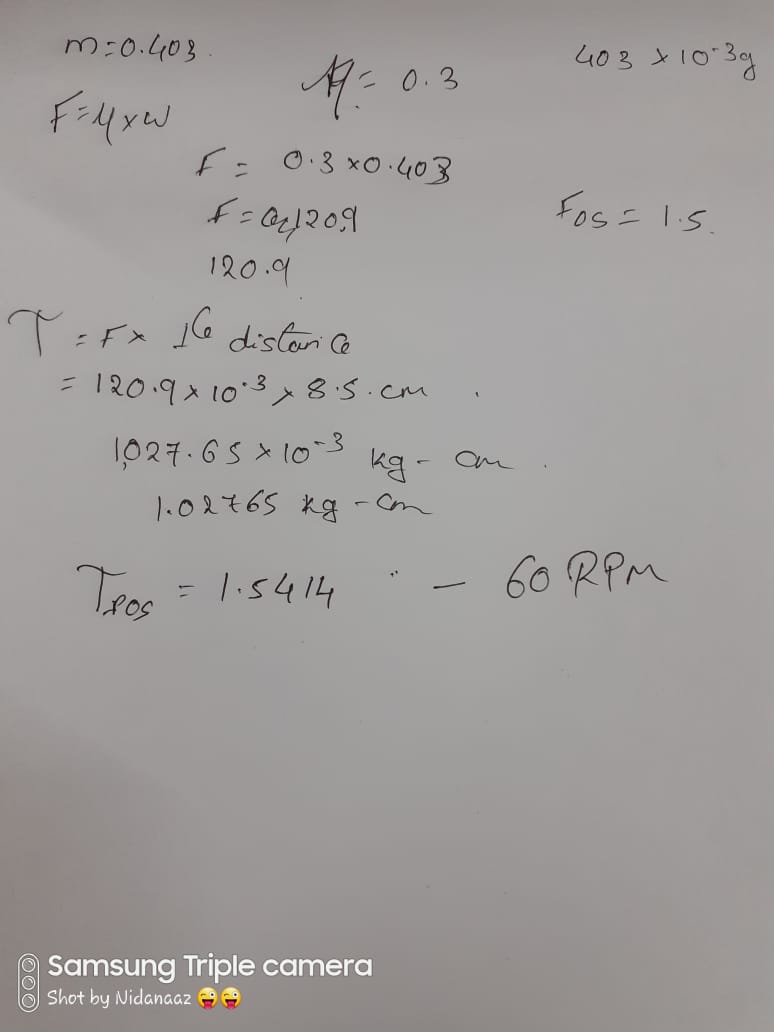 m=0.403.
μ = 0.3
403 x 10-3g
F=μxw
F = 0.3 x0.403
F = 0.1209
FOS = 1.5.
120.9
T = F x distance
= 120.9 x 10-3 x 8.5.cm
1,027.65 x 10-3 kg-cm.
1.02765 kg-cm
TFOS = 1.5414 " - 60 RPM
Samsung Triple camera
Shot by Nidanaaz 😜😜